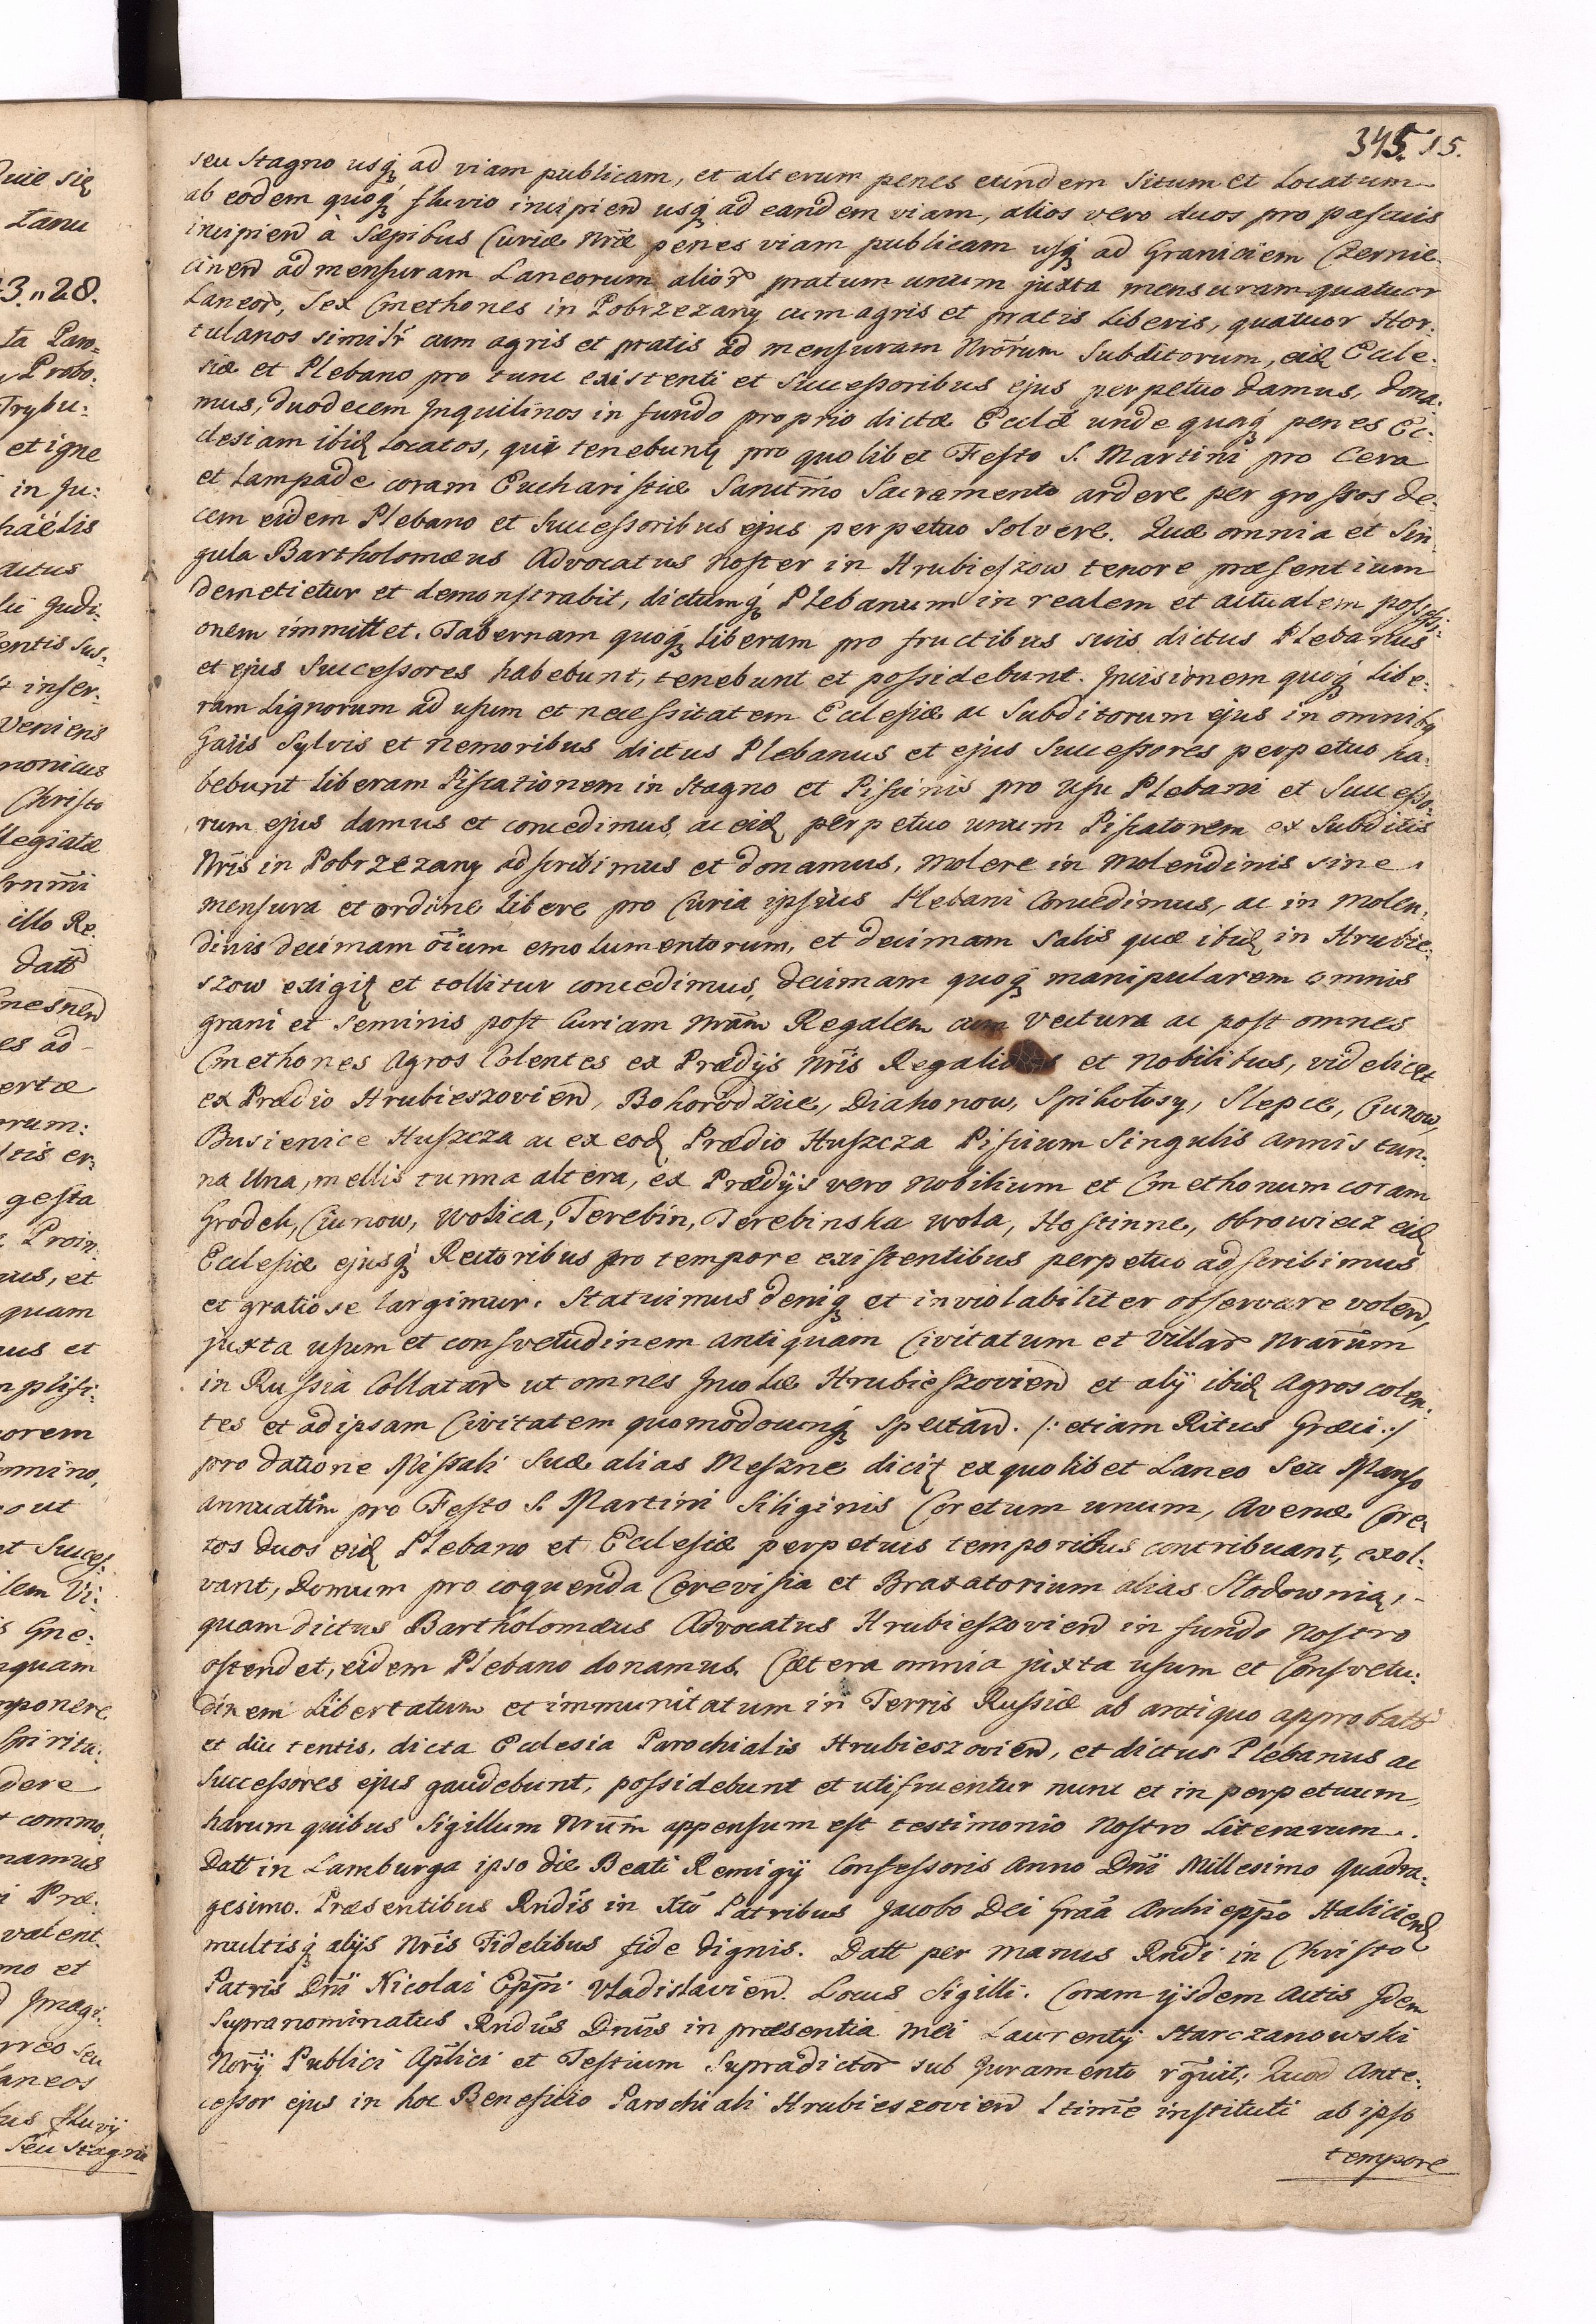 345. 15.
seu Stagno usq́ ad viam publicam, et alterum penes eundem Situm et Locatum
ab eodem quoq́ fluvio incipien̄ usq́ ad eandem viam, alios vero duos pro pascuis
incipien̄ à Sæpibus Curiæ Nr̃æ penes viam publicam usq́ ad Graniciem Czernie-
cinen̄ ad mensuram Laneorum alior̃ pratum unum juxta mensuram quatuor
Laneor̃, Sex Cmethones in Pobrzezany cum agris et pratis Liberis, quatuor Hor:
tulanos similr̃ cum agris et pratis ad mensuram Nrõrum Subditorum, eid Eccle:
siæ et Plebano pro tunc existenti et Successoribus ejus perpetuo damus, dona:
mus, duodecem Inquilinos in fundo proprio dictæ Eccl̃æ unde quaq́ penes Ec:
clesiam ibid Locatos, qui tenebunt̨ pro quolibet Festo S. Martini pro Cera
et Lampade coram Eucharistiæ Sanct̃mo Sacramento ardere per grossos de:
cem eidem Plebano et Successoribus ejus perpetuo Solvere. Quæ omnia et Sin:
gula Bartholomæus Advocatus Noster in Hrubieszow tenore præsentium
demetietur et demonstrabit, dictumq́ Plebanum in realem et actualem possessi:
onem immittet. Tabernam quoq́ Liberam pro fructibus suis dictus Plebanus
et ejus Successores habebunt, tenebunt et possidebunt. Incisionem quoq́ Libe:
ram Lignorum ad usum et necessitatem Ecclesiæ ac Subditorum ejus in omnibq
Gaiis Sylvis et Nemoribus dictus Plebanus et ejus Successores perpetuo ha:
bebunt Liberam Piscationem in Stagno et Piscinis pro usu Plebani et Successo:
rum ejus damus et concedimus, ac eid perpetuo unum Piscatorem ex Subditis
Nr̃is in Pobrzezany adscribimus et donamus, Molere in Molendinis sine
mensura et ordine Libere pro Curia ipsius Plebani Concedimus, ac in Molen:
dinis decimam oĩum emolumentorum, et decimam Salis quæ ibid in Hrubie:
szow exigit̨ et tollitur concedimus, decimam quoq́ manipularem omnis
grani et Seminis post Curiam Nrãm Regalem cum Vectura ac post omnes
Cmethones Agros Colentes ex Prædijs Nr̃is Regalibus et Nobilibus, videlicet
ex Prædio Hrubieszovien̄, Bohorodzice, Diahonow, Spikołosy, Slepce, Cunow,
Busienice Huszcza ac ex eod Prædio Huszcza Piscium Singulis Annis tun:
na Una, mellis tunna altera, ex Prædijs vero Nobilium et Cmethonum coram
Grodek, Ciunow, Wolica, Terebin, Terebinska Wola, Hostinne, Obrowiecz eid
Ecclesiæ ejusq́ Rectoribus pro tempore existentibus perpetuo adscribimus
et gratiose largimur. Statuimus deniq́ et inviolabiliter observare volen̄,
juxta usum et consvetudinem antiquam Civitatum et Villar̃ Nrarum
in Russia Collatar̃ ut omnes Incolæ Hrubieszovien̄ et alij ibid Agros colen:
tes et ad ipsam Civitatem quomodocunq́ spectan̄. /: etiam Ritus Græci :/
pro datione Missali Suæ alias Meszne dicit̨ ex quolibet Laneo Seu Manso
annuatim pro Festo S. Martini Siliginis Coretum unum, Avenæ Core:
tos duos eid Plebano et Ecclesiæ perpetuis temporibus contribuant, exol:
vant, Domum pro coquenda Cerevisia et Braxatorium alias Słodownią,
quam dictus Bartholomæus Advocatus Hrubieszovien̄ in fundo Nostro
ostendet, eidem Plebano donamus. Cætera omnia juxta usum et Consvetu:
dinem Libertatum et immunitatum in Terris Russiæ ab antiquo approbatt̃
et diu tentis, dicta Ecclesia Parochialis Hrubieszovien̄, et dictus Plebanus ac
Successores ejus gaudebunt, possidebunt et utifruentur nunc et in perpetuum,
harum quibus Sigillum Nrũm appensum est testimonio Nostro Literarum.
Datt in Lamburga ipso die Beati Remigij Confessoris Anno Dñi Millesimo Quadra:
gesimo. Præsentibus Rndis in Xtõ Patribus Jacobo Dei Graã Archieppõ Halicien̄
multisq́ alijs Nr̃is Fidelibus fide dignis. Datt per manus Rndi in Christo
Patris Dñi Nicolai Eppĩ Vladislavien̄. Locus Sigilli. Coram ijsdem Actis Idem
Supranominatus Rndus Dnũs in præsentia mei Laurentij Starczanowski
Norij Publici Aplici et Testium Supradictor̃ sub Juramento rg̃uit, Quod Ante:
cessor ejus in hoc Beneficio Parochiali Hrubieszovien̄ Ltimẽ instituti ab ipso
tempore